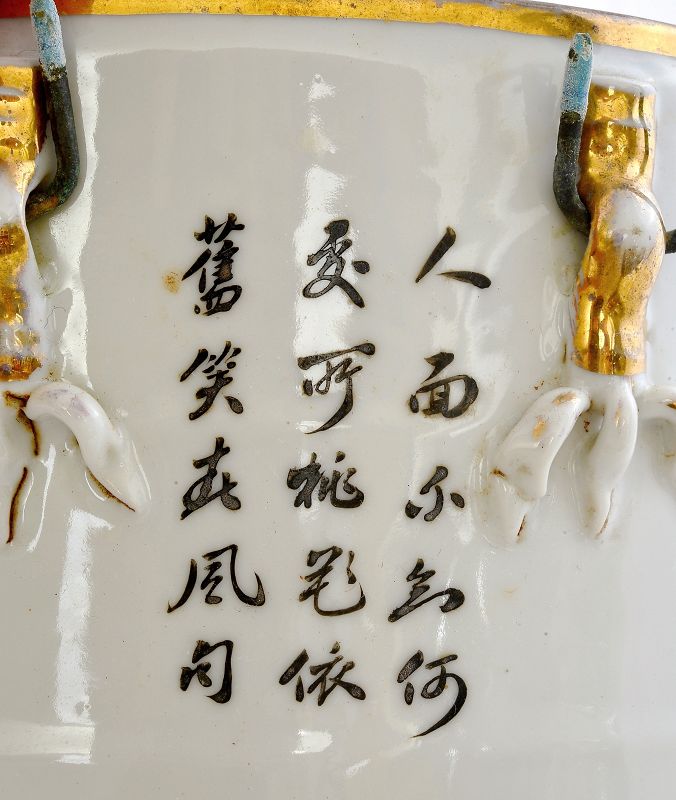 人面不知何
處所桃花依
舊笑春風句